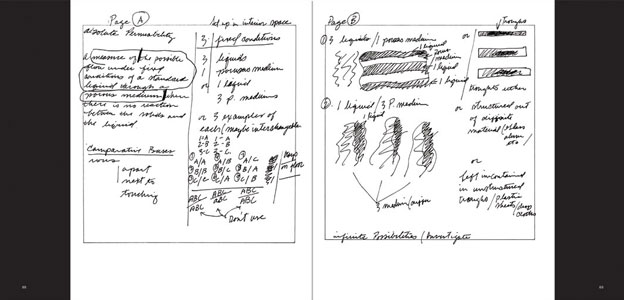 Page A
Absolute Permeability
a measure of the possible
flow under fixed
conditions of a standard
liquid through a
porous medium when
there is no reaction
between the solids and
the liquid
Comparative Bases
rows
apart
next to
touching
Set up in interior space
3 fixed conditions
3 liquids
1 porous medium
or 1 liquid
3 p. mediums
or 3 examples of
each / maybe interchangeable
1-A 1-A
2-B 2-B
3-C 3-C
A/A A/B A/C
B/B B/C B/A
C/C C/A C/B
on floor
ABC ABC ABC
ABC ABC ABC
Don't use
Page B
① 3 liquids / 1 porous medium
1 liquid
porous
medium
1 liquid
1 liquid
or
troughs
troughs either
or structured out
of different
material / glass
② 1 liquid / 3 P. medium
1 liquid
3 medium
or
left in contained
in unstructured
troughs / plastic
sheets / drop
cloths
infinite Possibilities / Investigate